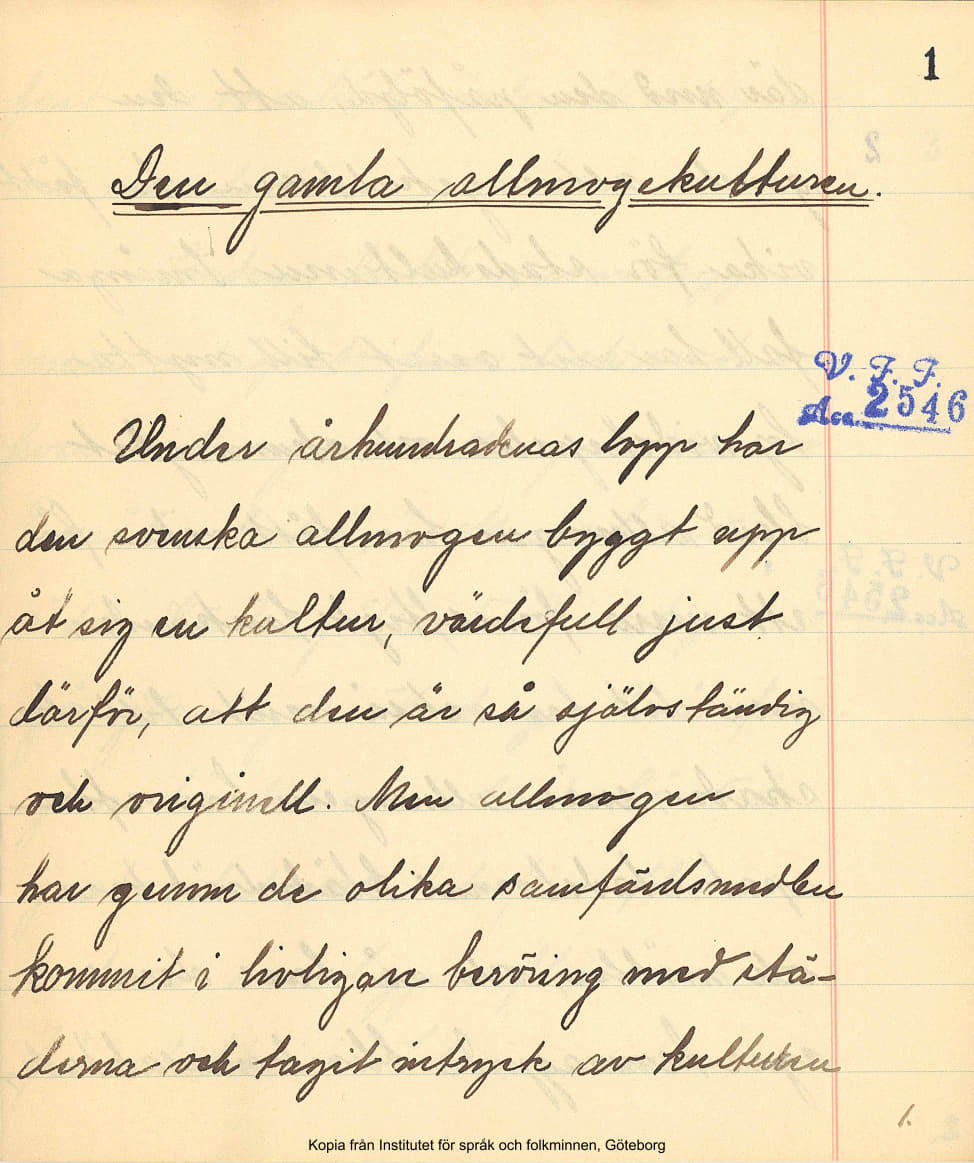 1
Den gamla allmogekulturen.
V. F. F.
Acc. 2546
Under århundradenas lopp har
den svenska allmogen byggt upp
åt sig en kultur, värdefull just
därför, att den är så självständig
och originell. Men allmogen
har genom de olika samfärdsmedlen
kommit i livligare beröring med stä-
derna och tagit intryck av kulturen
1.
Kopia från Institutet för språk och folkminnen, Göteborg